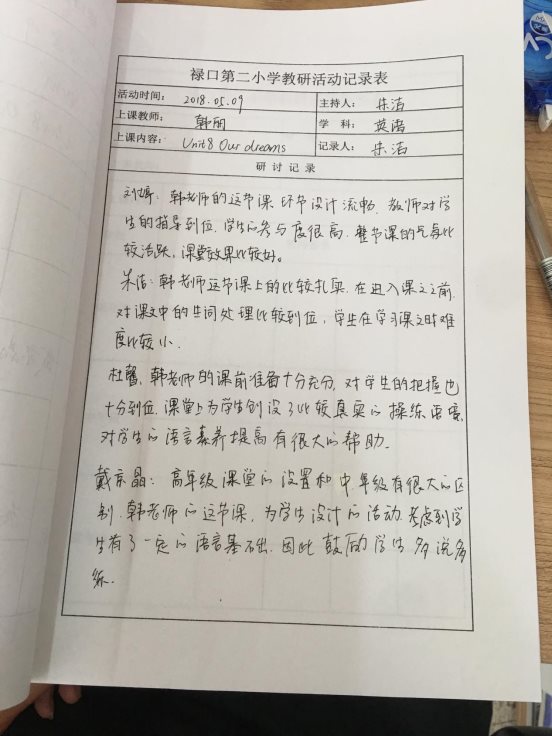 禄口第二小学教研活动记录表
活动时间： 2018.05.09 主持人： 朱洁
上课教师： 韩丽 学 科： 英语
上课内容： Unit8 Our dreams 记录人： 朱洁
研 讨 记 录
韩老师的这节课环节设计流畅．教师对学
生的指导到位．学生的参与度很高．整节课的气氛比
较活跃，课堂效果比较好。
朱洁：韩老师这节课上的比较扎实．在进入课文之前．
对课文中的生词处理比较到位，学生在学习课文时难
度比较小．
杜馨．韩老师的课前准备十分充分，对学生的把握也
十分到位．课堂上为学生创设了比较真实的操练语境，
对学生的语言素养提高有很大的帮助．
戴京晶：高年级课堂的设置和中年级有很大的区
别．韩老师的这节课，为学生设计的活动．考虑到学
生有了一定的语言基础．因此鼓励学生多说多
练．